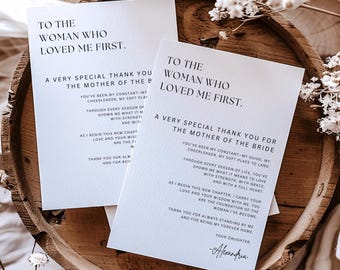 TO THE
WOMAN WHO
LOVED ME FIRST.
A VERY SPECIAL THANK YOU
THE MOTHER OF THE B
YOU'VE BEEN MY CONSTANT—MY GUIDE,
CHEERLEADER, MY SOFT PLACE
THROUGH EVERY SEASON OF
SHOWN ME WHAT IT MEANS
WITH STRENGTH, WITH
AND WITH
AS I BEGIN THIS NEW CHAPTER
LOVE AND YOUR LESSONS
ARE THE
WOMAN
THANK YOU FOR ALWAYS
AND FOR BEING MY
TO THE
WOMAN WHO
LOVED ME FIRST.
A VERY SPECIAL THANK YOU FOR
THE MOTHER OF THE BRIDE
YOU'VE BEEN MY CONSTANT—MY GUIDE, MY
CHEERLEADER, MY SOFT PLACE TO LAND.
THROUGH EVERY SEASON OF LIFE, YOU'VE
SHOWN ME WHAT IT MEANS TO LOVE
WITH STRENGTH, WITH GRACE,
AND WITH A FULL HEART.
AS I BEGIN THIS NEW CHAPTER, I CARRY YOUR
LOVE AND YOUR LESSONS WITH ME. YOU
ARE THE FOUNDATION OF THE
WOMAN I'VE BECOME.
THANK YOU FOR ALWAYS STANDING BY ME
AND FOR BEING MY FOREVER HOME.
YOUR DAUGHTER,
Alexandria